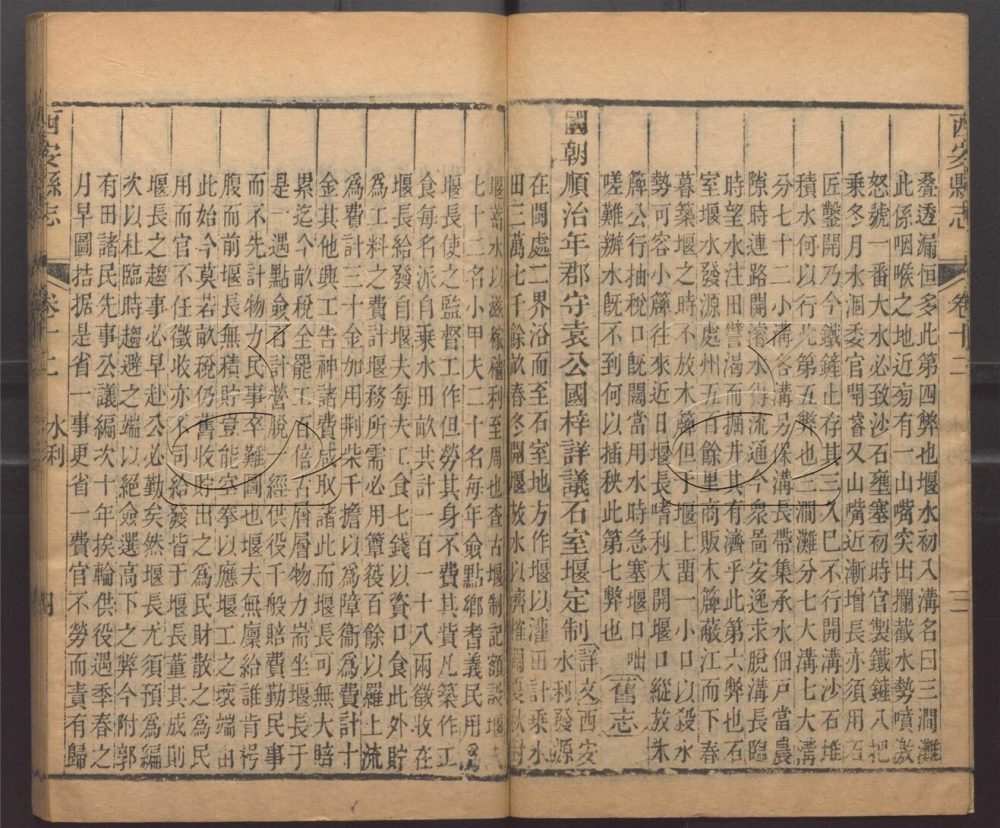 西安縣志 卷十二 三
疊透漏恒多此第四弊也堰水初入溝名曰三澗灘
此係咽喉之地近旁有一山嘴突出攔截水勢噴激
怒號一番大水必致沙石壅塞初時官製鐵鏟八把
乘冬月水涸委官開濬又山嘴近漸增長亦須用石
匠鑿開乃今鐵鏟止存其三入已不行開溝沙石堆
積水何以行此第五弊也三澗灘分七大溝七大溝
分七十二小溝各溝另保溝長帶集承水佃戶當農
隙時連路開濬水得流通今衆啚安逸求脫溝長臨
時望水注田譬渴而掘井其有濟乎此第六弊也石
室堰水發源處州五百餘里商販木簰蔽江而下春
暮築堰之時不放木簰但于堰上畱一小口以殺水
勢可容小簰往來近日堰長嗜利大開堰口縱放木
簰公行抽稅口旣闊當用水時急塞堰口咄
嗟難辦水旣不到何以插秧此第七弊也 舊志
國朝順治年郡守袁公國梓詳議石室堰定制 詳文西安水利發源
在閩處二界沿而至石室地方作堰以灌田計乘水
田三萬七千餘畝春冬開堰放水以濟
堰蓄水以滋稼穡利至周也查古堰制記額設堰
七十二名小甲夫二十名每年僉點鄉耆義民用爲
堰長使之監督工作但勞其身不費其貲凡築作工
食每名派自乘水田畝共計一百一十八兩徵收在
堰長給發自堰夫每夫工食七錢以資口食此外貯
爲工料之費計堰務所需必用簟筱百餘以羅上流
爲費計三十金如用荆柴千擔以爲障衞爲費計十
金其他興工告神諸費咸取諸此而堰長可無大賠
累迄今畝稅全罷工百倍古層層物力耑坐堰長于
是一遇點僉百計營脫一經供役千般賠費勤民事
而不先計物力民事卒難圖也堰夫無廩給誰肯枵
腹而前堰長無積貯豈能空拳以應堰工之壞端由
此始今莫若畝稅仍舊收貯出之爲民財散之爲民
用而官不任徵收亦不司給發皆于堰長董其成則
堰長之趨事必早赴公必勤矣然堰長尤須預爲編
次以杜臨時趨避之端以絕僉選高下之弊今附郭
有田諸民先事公議編次十年挨輪供役遇季春之
月早圖拮据是省一事更省一費官不勞而責有歸
西安縣志 卷十二 水利